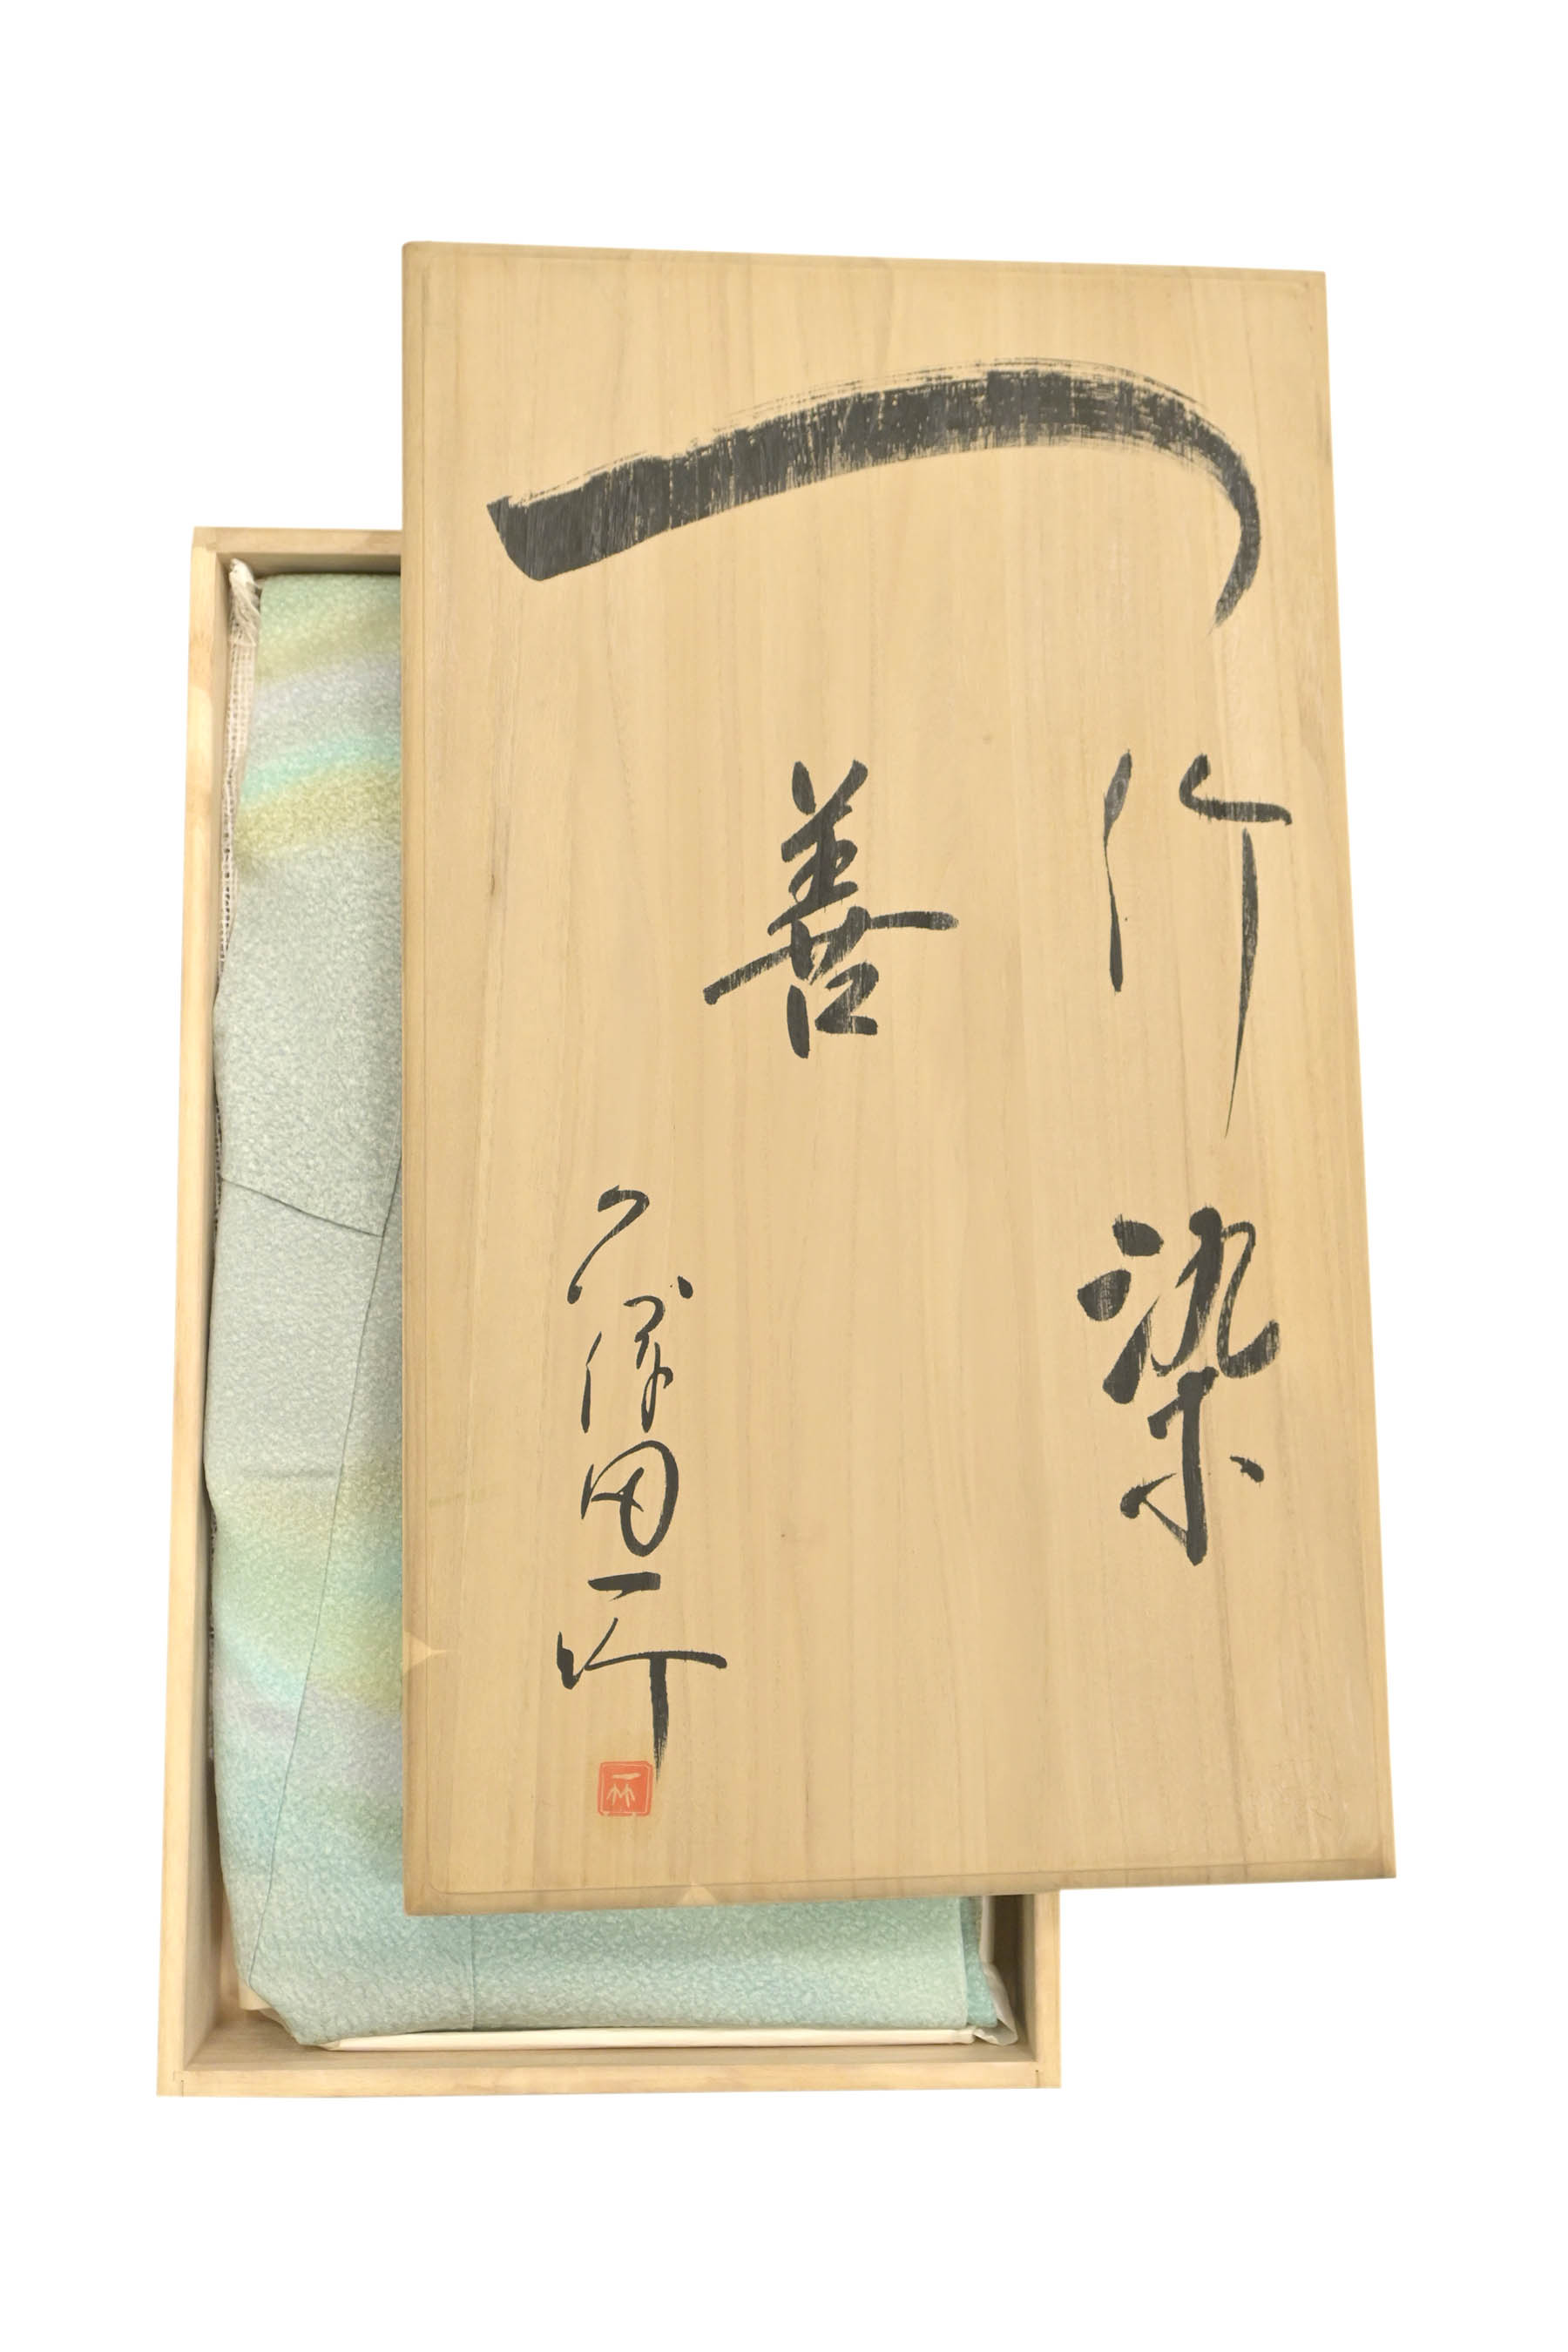 一竹染
善
久保田一竹
一竹